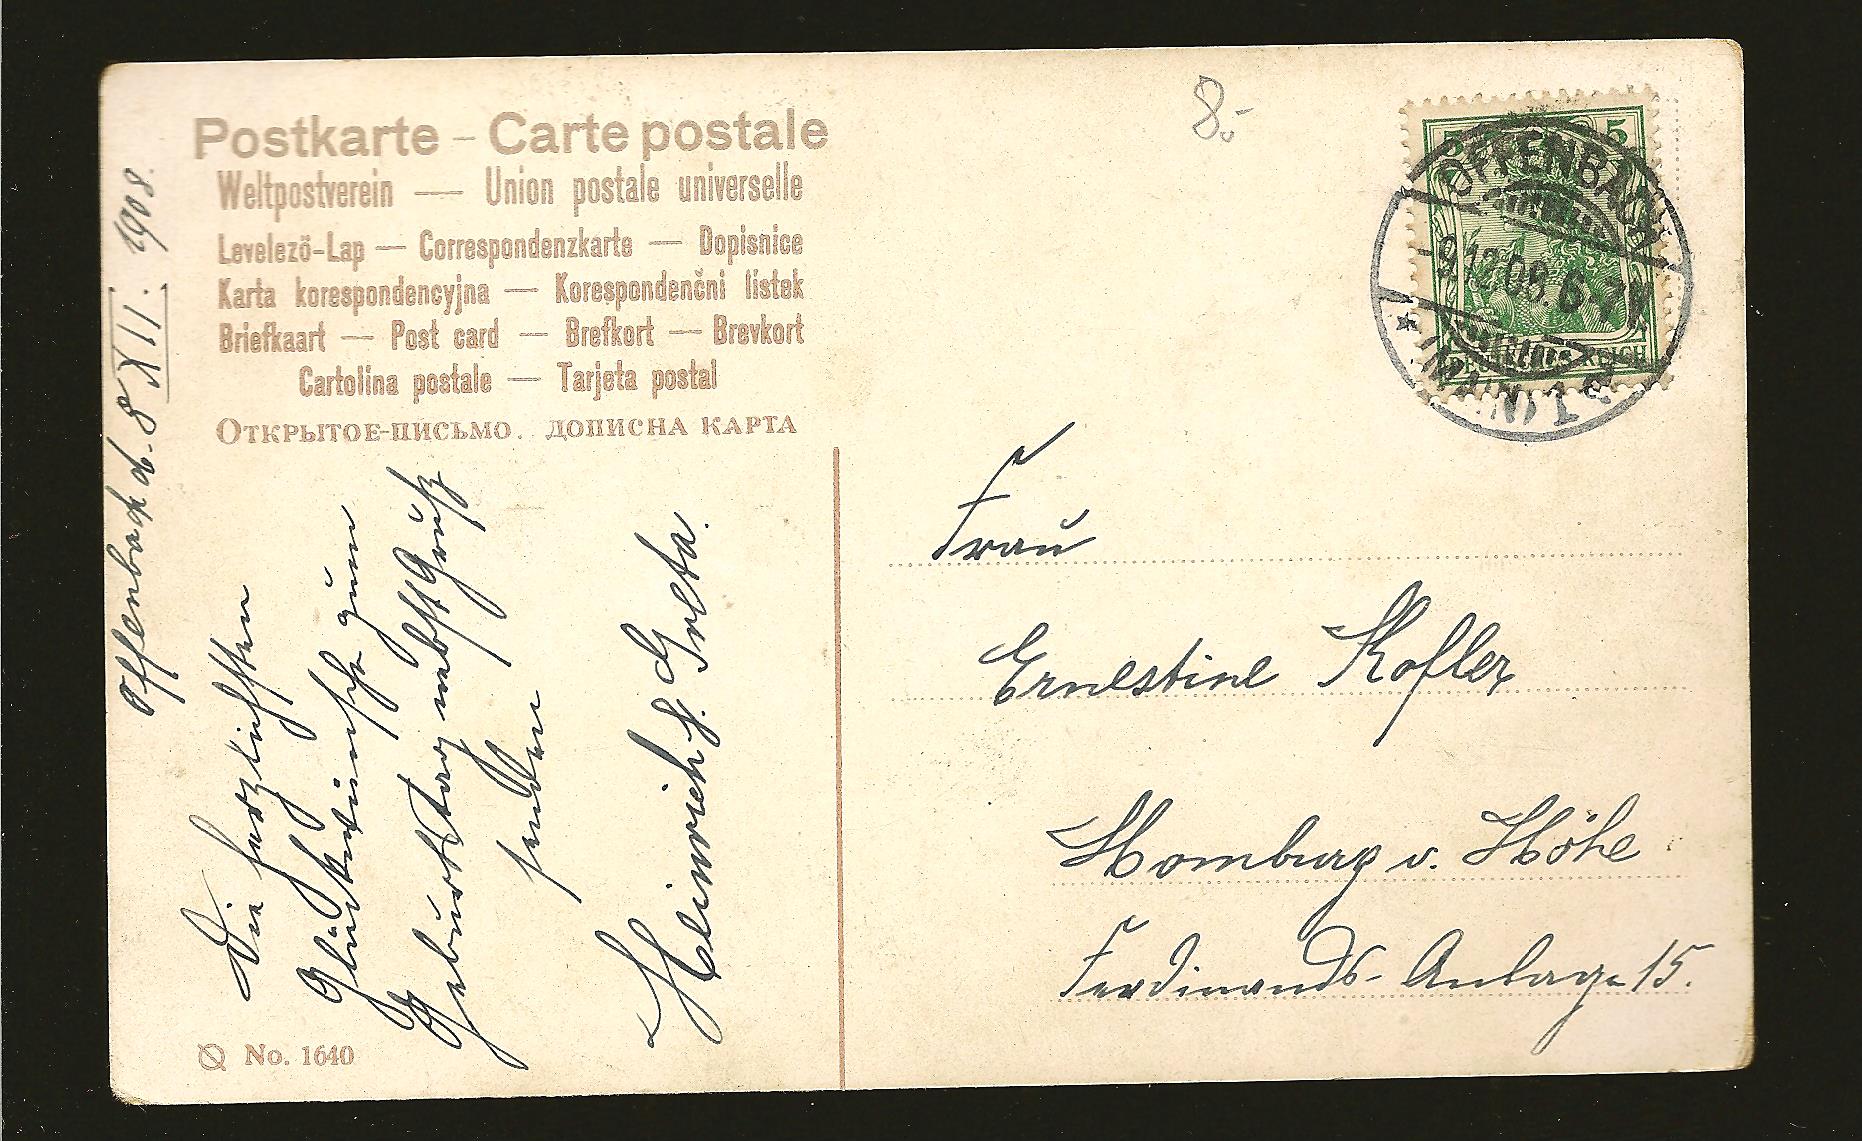 Postkarte – Carte postale
Weltpostverein — Union postale universelle
Levelező-Lap — Correspondenzkarte — Dopisnice
Karta korespondencyjna — Korespondenčni listek
Briefkaart — Post card — Brefkort — Brevkort
Cartolina postale — Tarjeta postal
Открытое-письмо. Дописна карта
8.-
5 5
OFFENBACH
9.12.08. 6-7
(MAIN) 1
DEUTSCHES REICH
Offenbach d. 8 XII. 1908.
Die herzlichsten
Glückwünsche zum
Geburtstag nebst Gruß
senden
Heinrich u. Greta.
Frau
Ernestine Kofler
Homburg v. Höhe
Ferdinands-Anlage 15.
No. 1640